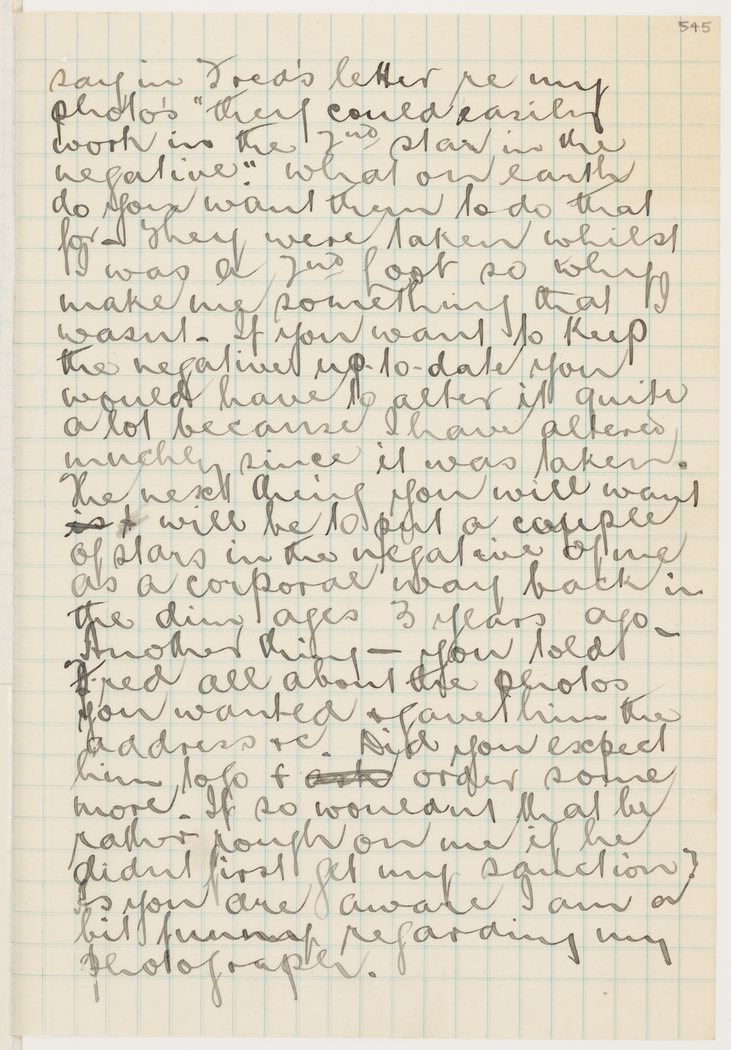 545
say in Fred's letter re my
photo's "they could easily
work in the 2nd star in the
negative" what on earth
do you want them to do that
for - They were taken whilst
I was a 2nd Loot so why
make me something that I
wasnt - If you want to keep
the negatives up-to-date you
would have to alter it quite
a lot because I have altered
muchly since it was taken.
The next thing you will want
is t will be to put a couple
of stars in the negative of me
as a corporal way back in
the dim ages 3 years ago -
Another thing - you told
Fred all about the photos
you wanted & gave him the
address &c. Did you expect
him to go & ask order some
more. If so wouldnt that be
rather rough on me if he
didnt first get my sanction?
As you are aware I am a
bit funny regarding my
photograph.